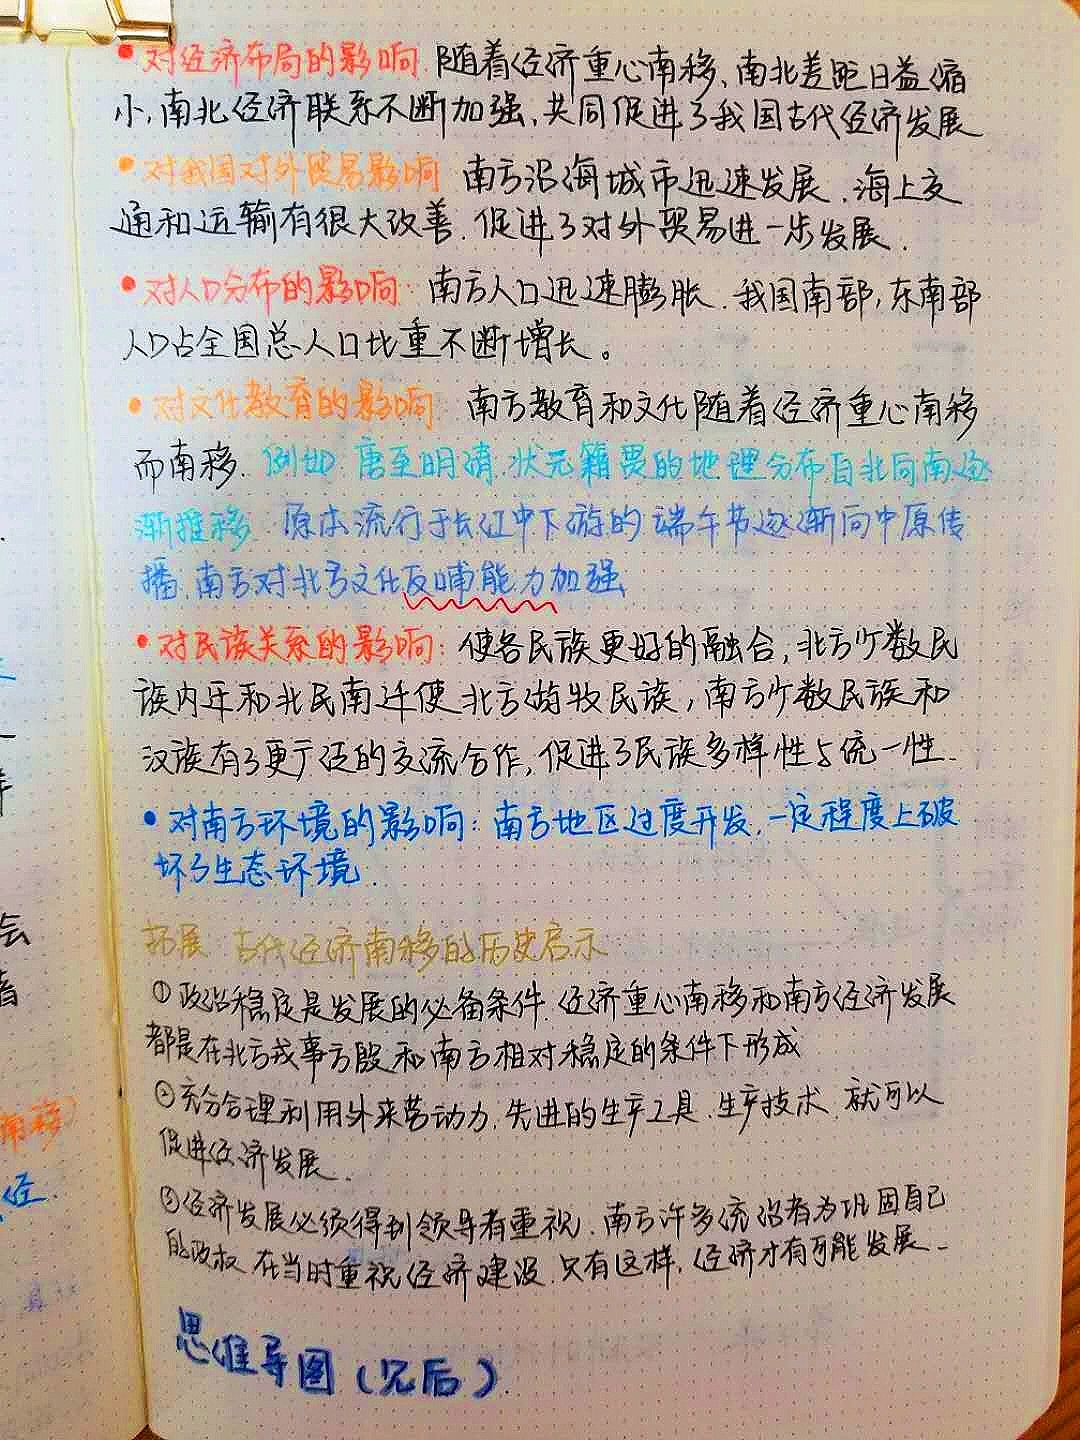 • 对经济布局的影响 随着经济重心南移、南北差距日益缩
小,南北经济联系不断加强,共同促进了我国古代经济发展
• 对我国对外贸易影响 南方沿海城市迅速发展,海上交
通和运输有很大改善.促进了对外贸易进一步发展.
• 对人口分布的影响 南方人口迅速膨胀.我国南部,东南部
人口占全国总人口比重不断增长。
• 对文化教育的影响 南方教育和文化随着经济重心南移
而南移.例如.唐至明清,状元籍贯的地理分布自北向南逐
渐推移 原本流行于长江中下游的端午节逐渐向中原传
播.南方对北方文化反哺能力加强
• 对民族关系的影响:使各民族更好的融合,北方少数民
族内迁和北民南迁使北方游牧民族,南方少数民族和
汉族有了更广泛的交流合作,促进了民族多样性与统一性.
• 对南方环境的影响:南方地区过度开发,一定程度上破
坏了生态环境.
拓展 古代经济南移的历史启示
①政治稳定是发展的必备条件.经济重心南移和南方经济发展
都是在北方战事方殷和南方相对稳定的条件下形成
②充分合理利用外来劳动力.先进的生产工具.生产技术.就可以
促进经济发展.
③经济发展必须得到领导者重视.南方许多统治者为巩固自己
的政权.在当时重视经济建设.只有这样,经济才有可能发展.
思维导图(见后)
南移)
经.
会